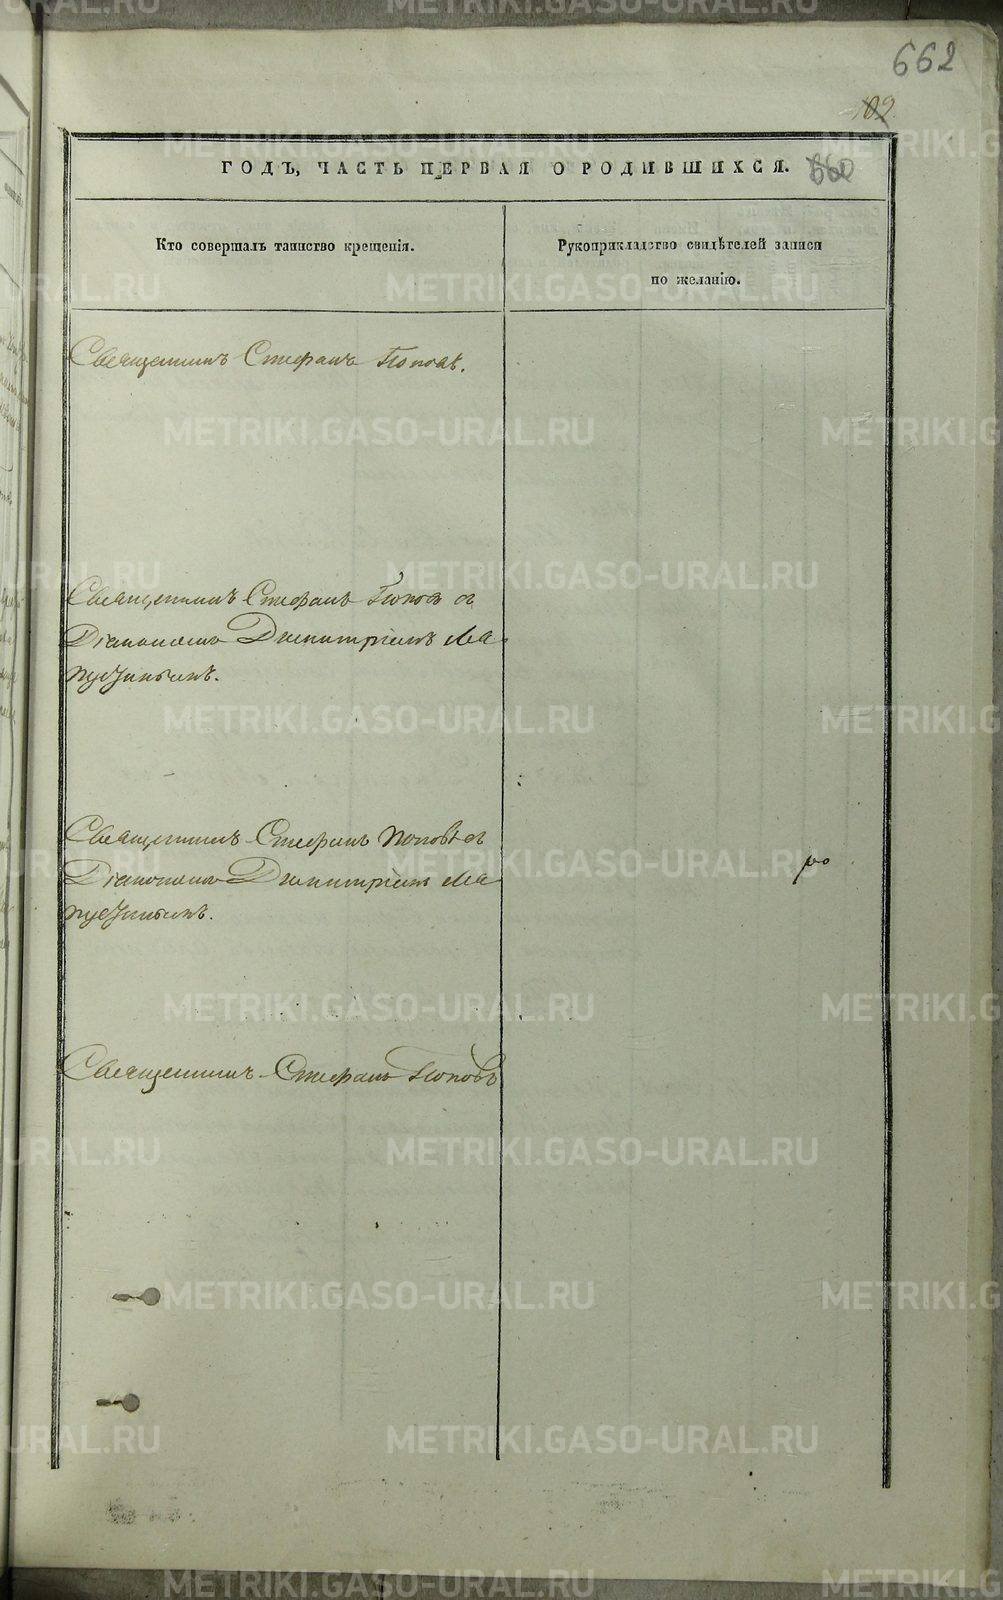 662
109
ГОДЪ, ЧАСТЬ ПЕРВАЯ О РОДИВШИХСЯ. 660
Кто совершалъ таинство крещенія.
Рукоприкладство свидѣтелей записи
по желанію.
Священникъ Стефанъ Поповъ.
Священникъ Стефанъ Поповъ съ
Діакономъ Димитріемъ Ма-
Священникъ Стефанъ Поповъ съ
Діакономъ Димитріемъ Ма-
Священникъ Стефанъ Поповъ
METRIKI.GASO-URAL.RU